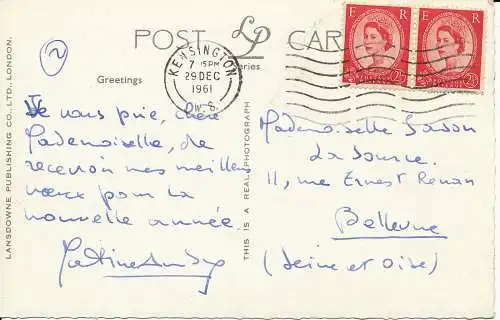 POST CARD
LP
Series
E R
E R
2½D
2½D
KENSINGTON
7 15PM
29 DEC
1961
W.8.
2
Greetings
Je vous prie, chère
Mademoiselle, de
recevoir mes meilleurs
vœux pour la
nouvelle année.
LANSDOWNE PUBLISHING CO., LTD., LONDON.
THIS IS A REAL PHOTOGRAPH
Mademoiselle
La Source
11, rue Ernest Renan
Bellevue
(Seine et Oise)